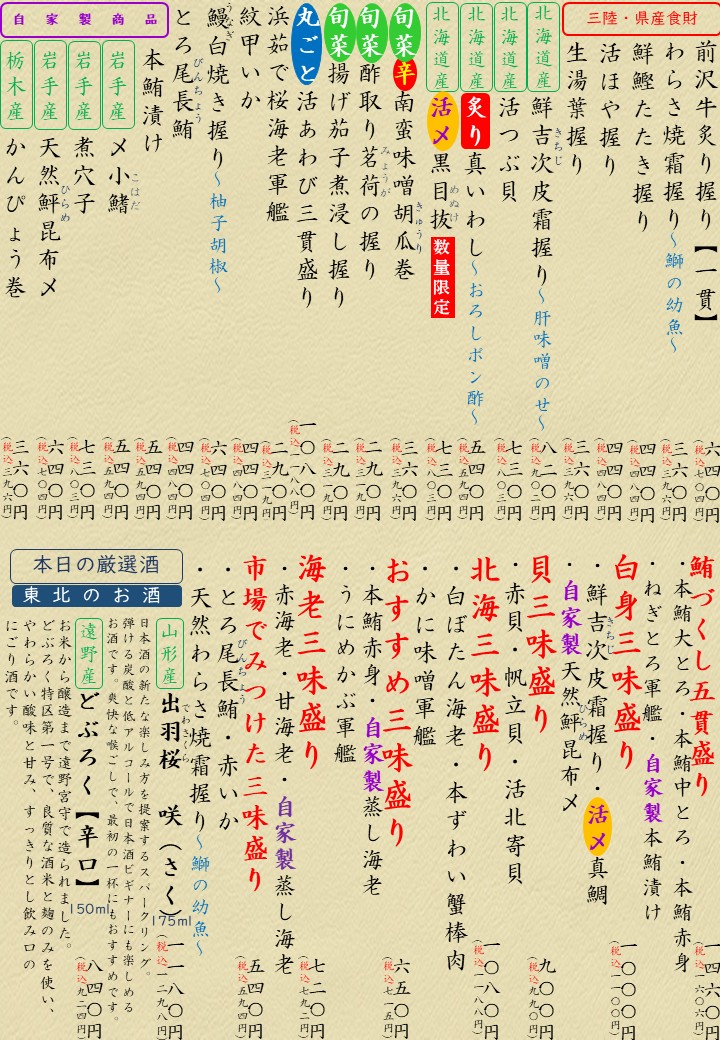 三陸・県産食財
前沢牛炙り握り【一貫】 六四〇円 (税込七〇四円)
わらさ焼霜握り～鰤の幼魚～ 三六〇円 (税込三九六円)
鮮鰹たたき握り 四四〇円 (税込四八四円)
活ほや握り 四四〇円 (税込四八四円)
生湯葉握り 三六〇円 (税込三九六円)
北海道産 鮮吉次皮霜握り～肝味噌のせ～ 八二〇円 (税込九〇二円)
きちじ
北海道産 活つぶ貝 七三〇円 (税込八〇三円)
北海道産 炙り真いわし～おろしポン酢～ 五四〇円 (税込五九四円)
北海道産 活〆黒目抜 数量限定 七三〇円 (税込八〇三円)
めぬけ
旬菜 辛 南蛮味噌胡瓜巻 三六〇円 (税込三九六円)
きゅうり
旬菜 酢取り茗荷の握り 二九〇円 (税込三一九円)
みょうが
旬菜 揚げ茄子煮浸し握り 二九〇円 (税込三一九円)
丸ごと 活あわび三貫盛り 一〇八〇円 (税込一一八八円)
浜茹で桜海老軍艦 二九〇円 (税込三一九円)
紋甲いか 四四〇円 (税込四八四円)
鰻白焼き握り～柚子胡椒～ 六四〇円 (税込七〇四円)
うなぎ
とろ尾長鮪 四四〇円 (税込四八四円)
びんちょう
自家製商品
本鮪漬け 五四〇円 (税込五九四円)
岩手産 〆小鰭 五四〇円 (税込五九四円)
こはだ
岩手産 煮穴子 七三〇円 (税込八〇三円)
岩手産 天然鮃昆布〆 六四〇円 (税込七〇四円)
ひらめ
栃木産 かんぴょう巻 三六〇円 (税込三九六円)
鮪づくし五貫盛り 一四六〇円 (税込一六〇六円)
・本鮪大とろ・本鮪中とろ・本鮪赤身
・ねぎとろ軍艦・自家製本鮪漬け
白身三味盛り 一〇〇〇円 (税込一一〇〇円)
・鮮吉次皮霜握り・活〆真鯛
きちじ
・自家製天然鮃昆布〆
ひらめ
貝三味盛り 九〇〇円 (税込九九〇円)
・赤貝・帆立貝・活北寄貝
北海三味盛り 一〇八〇円 (税込一一八八円)
・白ぼたん海老・本ずわい蟹棒肉
・かに味噌軍艦
おすすめ三味盛り 六五〇円 (税込七一五円)
・本鮪赤身・自家製蒸し海老
・うにめかぶ軍艦
海老三味盛り 七二〇円 (税込七九二円)
・赤海老・甘海老・自家製蒸し海老
市場でみつけた三味盛り 五四〇円 (税込五九四円)
・とろ尾長鮪・赤いか
びんちょう
・天然わらさ焼霜握り～鰤の幼魚～
本日の厳選酒
東北のお酒
山形産 出羽桜 咲(さく) 175ml 一一八〇円 (税込一二九八円)
でわさくら
日本酒の新たな楽しみ方を提案するスパークリング。
弾ける炭酸と低アルコールで日本酒ビギナーにも楽しめる
お酒です。爽快な喉ごしで、最初の一杯にもおすすめです。
遠野産 どぶろく【辛口】 150ml 八四〇円 (税込九二四円)
お米から醸造まで遠野宮守で造られました。
どぶろく特区第一号で、良質な酒米と麹のみを使い、
やわらかい酸味と甘み、すっきりとし飲み口の
にごり酒です。